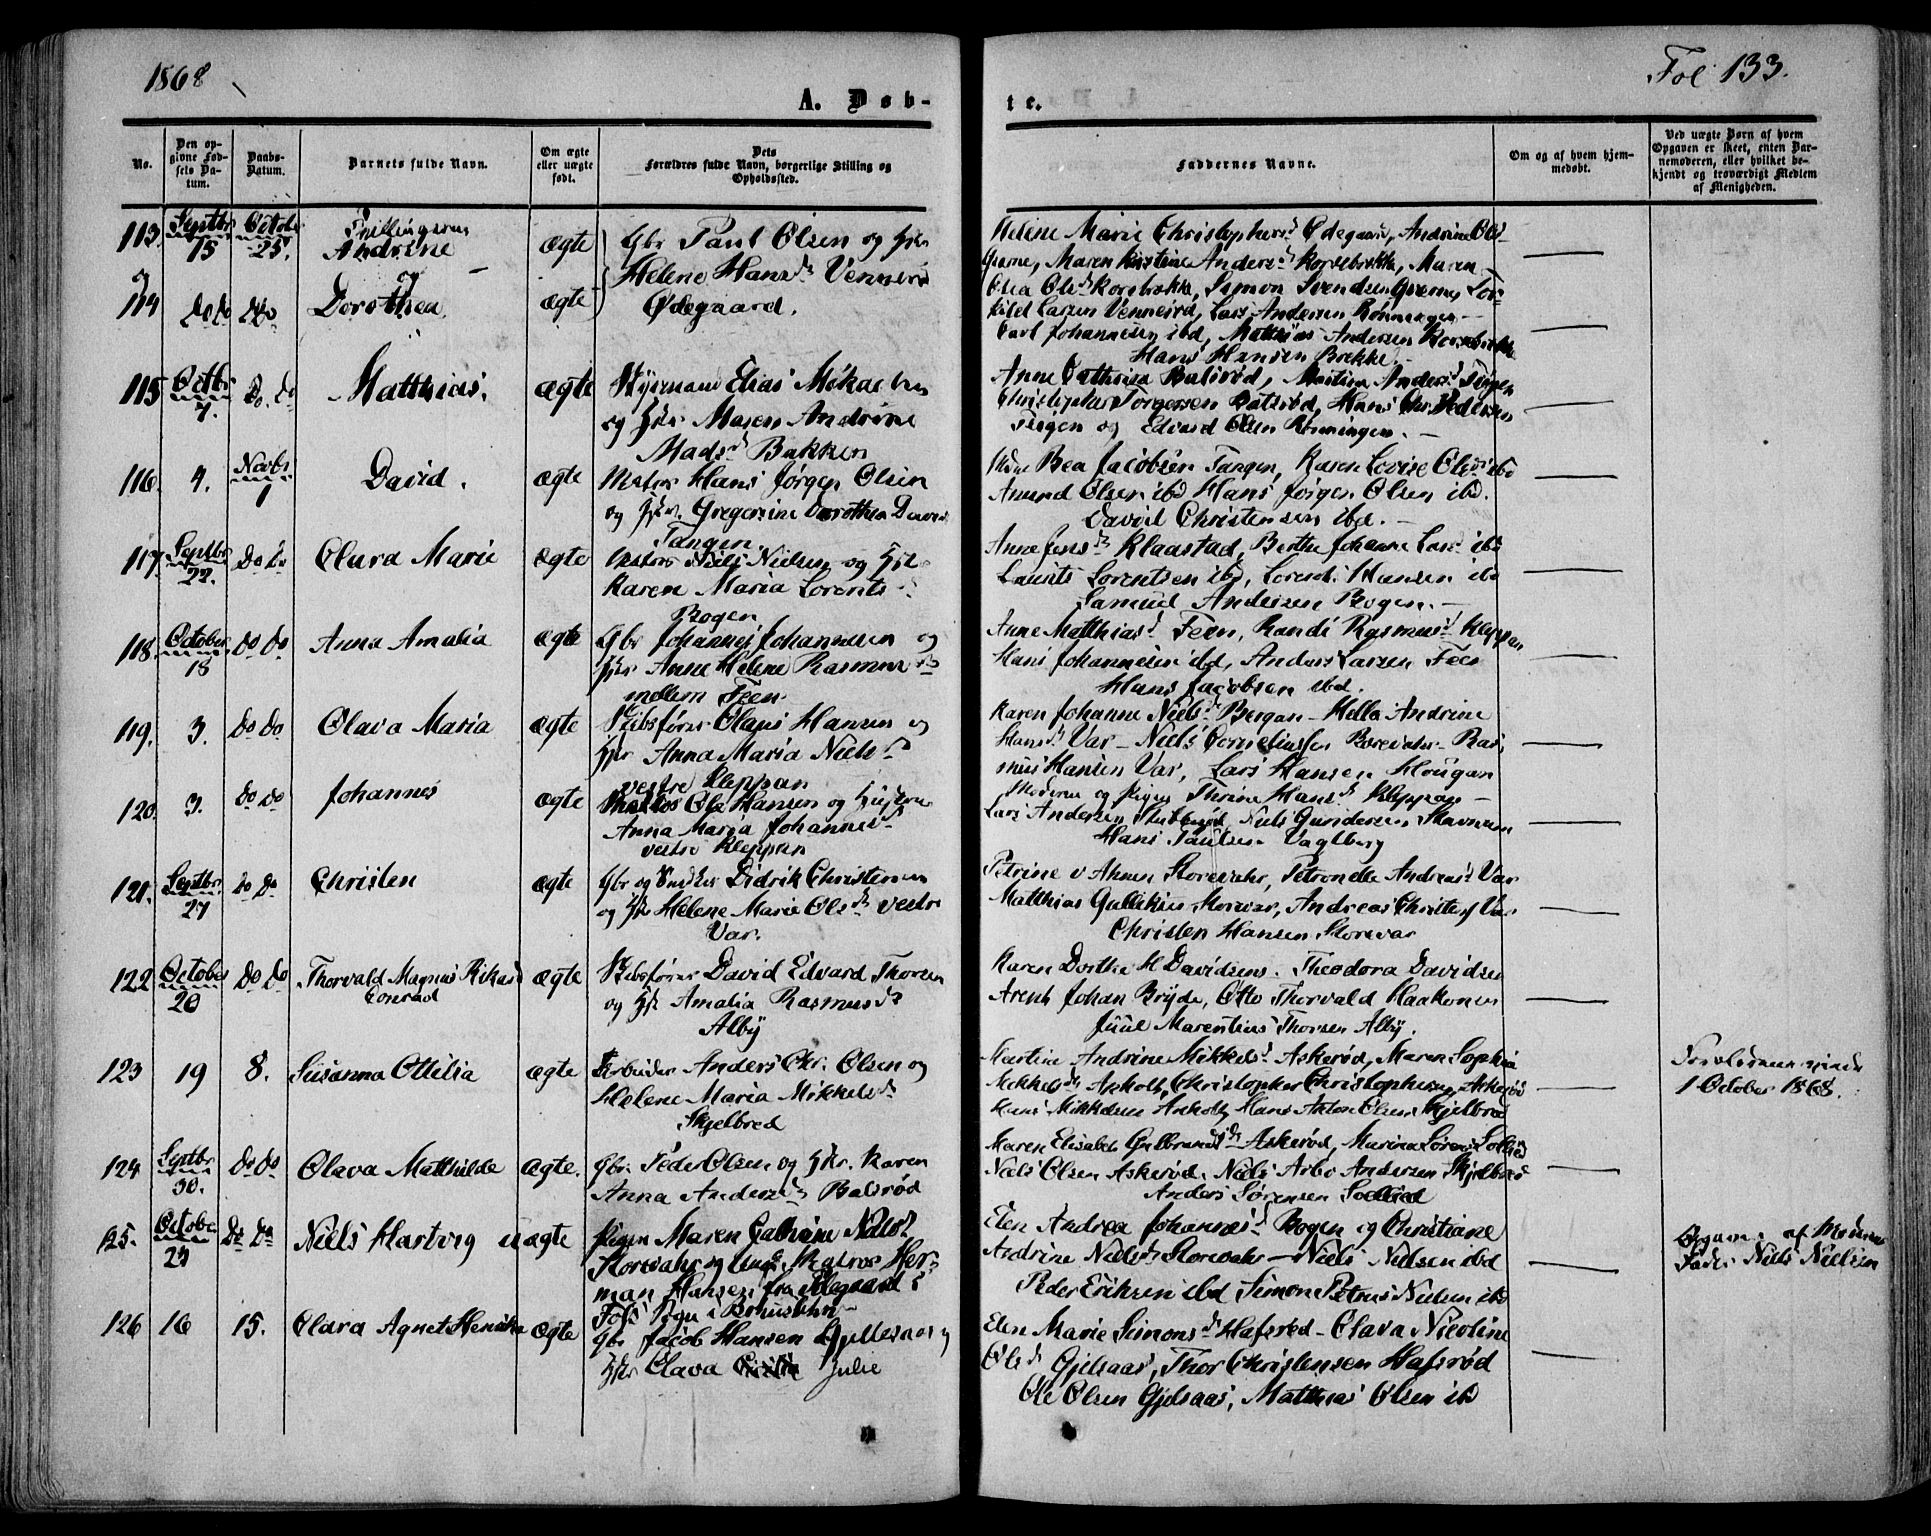 1868
Fol 133.
A. Døb-
te.
No.
Den op-
givne Fød-
sels Da-
tum.
Daabs-
Datum.
Barnets fulde Navn.
Om ægte
eller uægte
født.
Dets
Forældres fulde Navn, borgerlige Stilling og
Opholdssted.
Faddernes Navne.
Om og af hvem hjem-
medøbt.
Ved uægte Børn af hvem
Opgaven er skeet, enten Bar-
nemoderen, eller hvilket be-
kjendt og troværdigt Medlem
af Menigheden.
113. Septbr 15 Octobr 25. Tvillingerne
Andrine ægte Gbr Paul Olsen og Hst
og og Helene Hansd. Vennerød
114 do do do do Dorothea ægte Ødegaard.
Helene Marie Christophersd. Ødegaard, Andrine Ols-
Maren Kirstine Andersd. Korsebrekke, Maren
Olea Olsd. Korsbrekke, Simon Svendsen Tor-
kild Larsen Vennerød, Lars Andersen Rønningen
Carl Johannesen ibd, Matthias Andersen Korsebrekke
Hans Hansen Brekke.
115 Octbr 4. do. do Matthias. ægte Styrmand Elias Mikaelsen
og Hst Maren Andrine
Madsd. Bakken
Anne Cathrina Balsrød, Martina Andersd.
Christopher Torgersen Batsrød, Hans Chr. Pedersen
og Edvard Olsen Rønningen.
116. 4. Novbr 1 David. ægte Matros Hans Jørgen Olsen
og Hst. Gregersine Dorothea
Tangen
Bea Jacobsen Tangen, Karen Lovise Olsd. ibd
Amund Olsen ibd Hans Jørgen Olsen ibd.
David Christensen ibd.
117. Septbr 22. do do Clara Marie ægte Matros Niels Nielsen og Hst
Karen Maria Lorentsd.
Bogen
Anne Jensd. Klaastad, Berthe Johanne Larsd ibd
Laurits Lorentsen ibd, Lorents Hansen ibd
Samuel Andersen Bogen.
118. October 18 do do Anna Amalia ægte Gbr Johannes Johannesen og
Hst Anne Helene Rasmusd.
mellem Feen.
Anne Matthiasd. Feen, Randi Rasmusd. Kleppan
Hans Johannesen ibd, Anders Larsen Feen
Hans Jacobsen ibd.
119. 3. do do Olava Maria ægte Skibsfører Olaus Hansen og
Hst Anna Maria Nielsd.
vestre Kleppan
Karen Johanne Nielsd. Bergan - Hella Andrine
Hansd. Var - Niels Corneliussen - Ras-
mus Hansen Var, Lars Hansen Hougan
120. 3. do do Johannes ægte Matros Ole Hansen og Hustru
Anna Maria Johannesd.
vestre Kleppan
Moderen og Pigen Thrine Hansd. Kleppan -
Lars Andersen Niels Gundersen Stavnum
Hans Paulsen Vaglberg
121. Septbr. 27 do do Christen ægte Gbr og Snedker Didrik Christensen
og Hst Helene Marie Olsd. vestre
Var.
Petrine v Ahnen Storevahr, Petronelle Andreasd. Var
Matthias Gulliksen Storevar, Andreas Christens. Var
Christen Hansen Storevar
122 October 20 do do Thorvald Magnus Rikard
Conrad ægte Skibsfører David Edvard Thorsen
og Hst Amalia Rasmusd.
Alby
Karen Dorthea M Davidsens. Theodora Davidsen
Arent Johan Bryde, Otto Thorvald Haakonsen
Juul Marentius Thorsen Alby.
123 19 8. Susanna Ottilia ægte Arbeider Anders Chr. Olsen og
Helene Maria Mikkelsd.
Skjelbred
Martine Andrine Mikkelsd. Askerød, Maren Sophia
Mikkelsd. Aaholt, Christopher Christophersen Askerød
Hans Mikkelsen Aaholt, Hans Anton Olsen Skjelbred
Forældrene viede
1 October 1868.
124 Septbr 30. do do Olava Matthilde ægte. Gbr. Peder Olsen og Hst. Karen
Anna Andersd. Balsrød
Maren Elisabet Gulbrandsd. Askerød, Marina Sørensd.
Niels Olsen Askerød, Niels Arbo Andersen Skjelbred
Anders Sørensen
125. October 24 do do Niels Hartvig uægte Pigen Maren Cathrine Nielsd.
Storevahr og Ung. Matros Her-
man Hansen fra Ødegaard i
Foss Sogn i Bohuslehn
Elen Andrea Johannesd. Bogen og Christiane
Andrine Nielsd. Storevahr - Niels Nielsen ibd
Peder Eriksen ibd Simon Petrus Nielsen ibd
Opgav: af Moderens
Fader Niels Nielsen
126 16 15. Clara Agnet Henrikke ægte Gbr Jacob Hansen Gjellsaas og
Hst Olava Julie
Elen Marie Simonsd. Hafsrød - Olava Nicoline
Olsd. Gjelsaas, Thor Christensen Hafsrød
Ole Olsen Gjelsaas, Matthias Olsen ibd